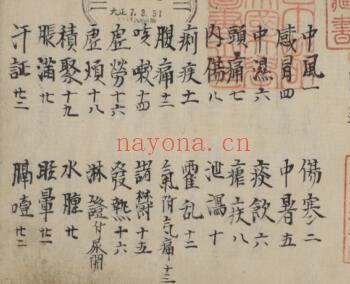 中風一 傷寒二
感冒四 中暑五
中濕六 痰飲六
頭痛七 瘧疾八
内傷八 泄瀉十
痢疾十一 霍乱十二
腹痛十二 氣附気痛十三
咳嗽十四 諸欝十五
虚勞十六 發熱十六
虚煩十八 淋證付尿閉
積聚十九 水腫廿
脹滿廿 眩暈廿一
汗証廿二 膈噎廿二
大正7.3.31
nayona.cn